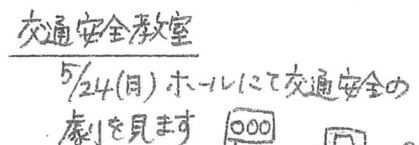 交通安全教室
5/24(月)ホールにて交通安全の
劇を見ます